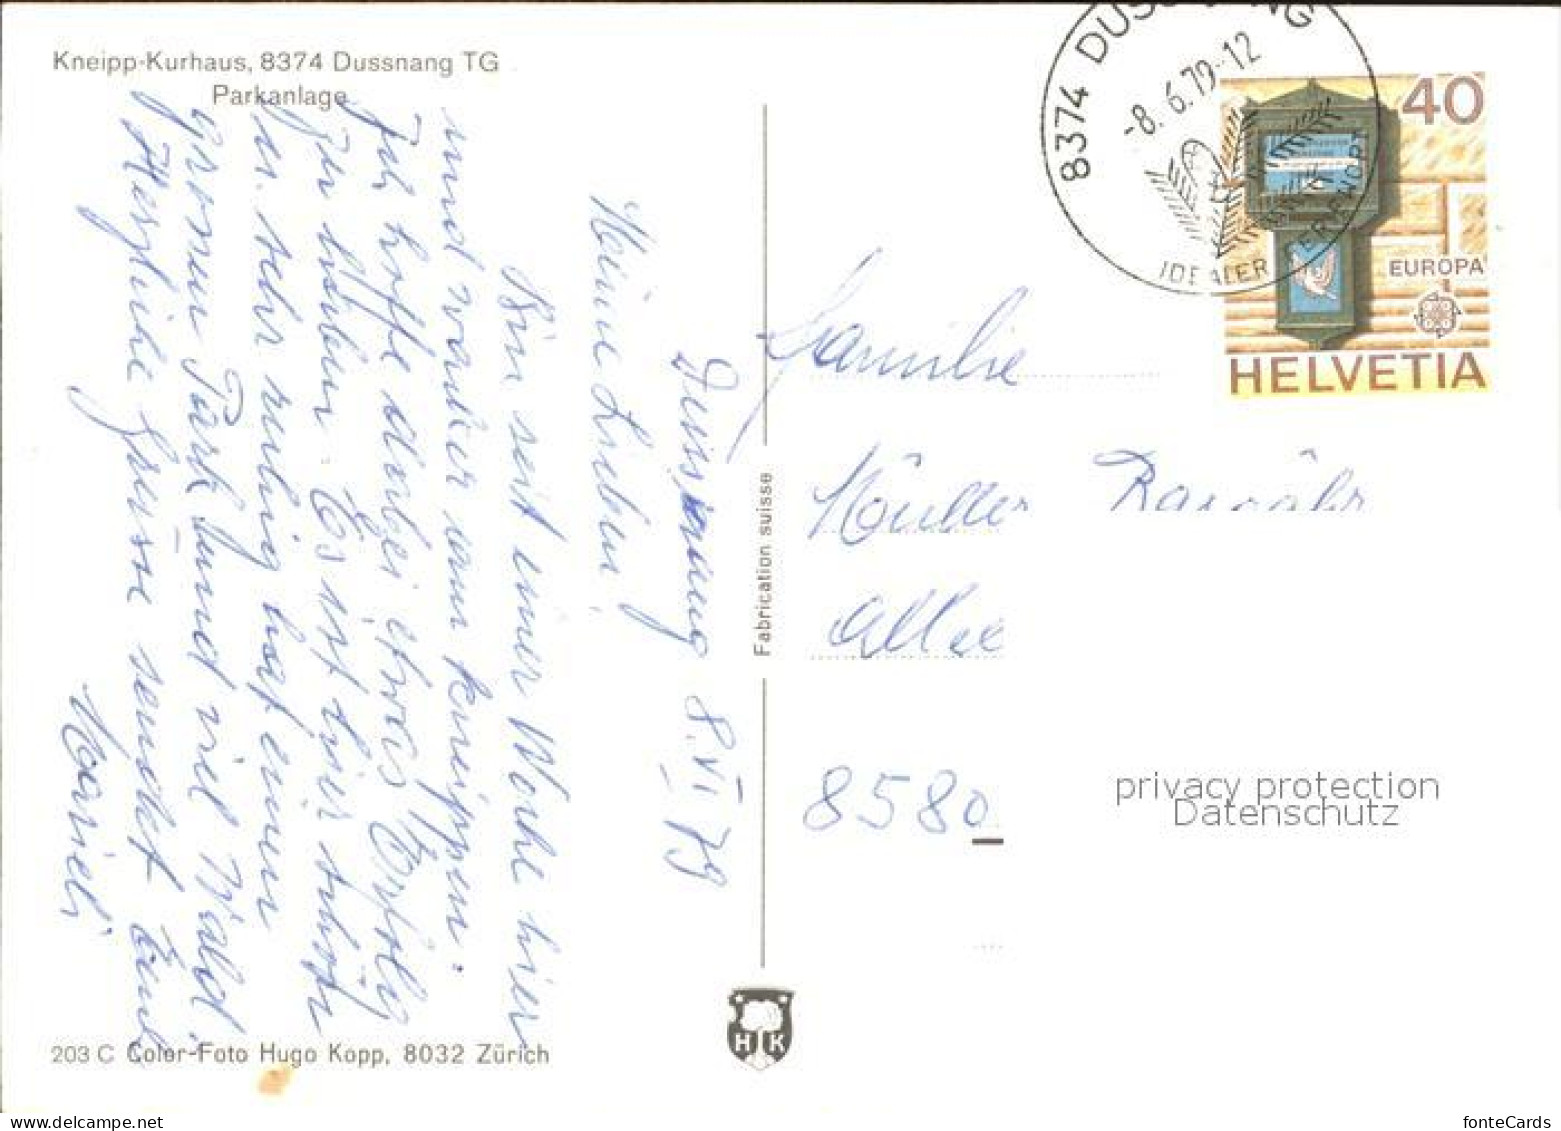 Kneipp-Kurhaus, 8374 Dussnang TG
Parkanlage
Dussnang 8. VI 79
Meine Lieben,
Bin seit einer Woche hier
und wandere am kneippen.
Ich hoffe dabei etwas Erfolg
zu haben. Es ist hier schön
u. sehr ruhig hat einen
grossen Park und viel Wald.
Herzliche Grüsse sendet Euch
Marieli
203 C Color-Foto Hugo Kopp, 8032 Zürich
Fabrication suisse
H K
8374 DUSSNANG
-8. 6. 79-12
IDEALER
40
EUROPA
HELVETIA
Familie
Müller
Allee
8580
privacy protection
Datenschutz
delcampe.net
fonteCards